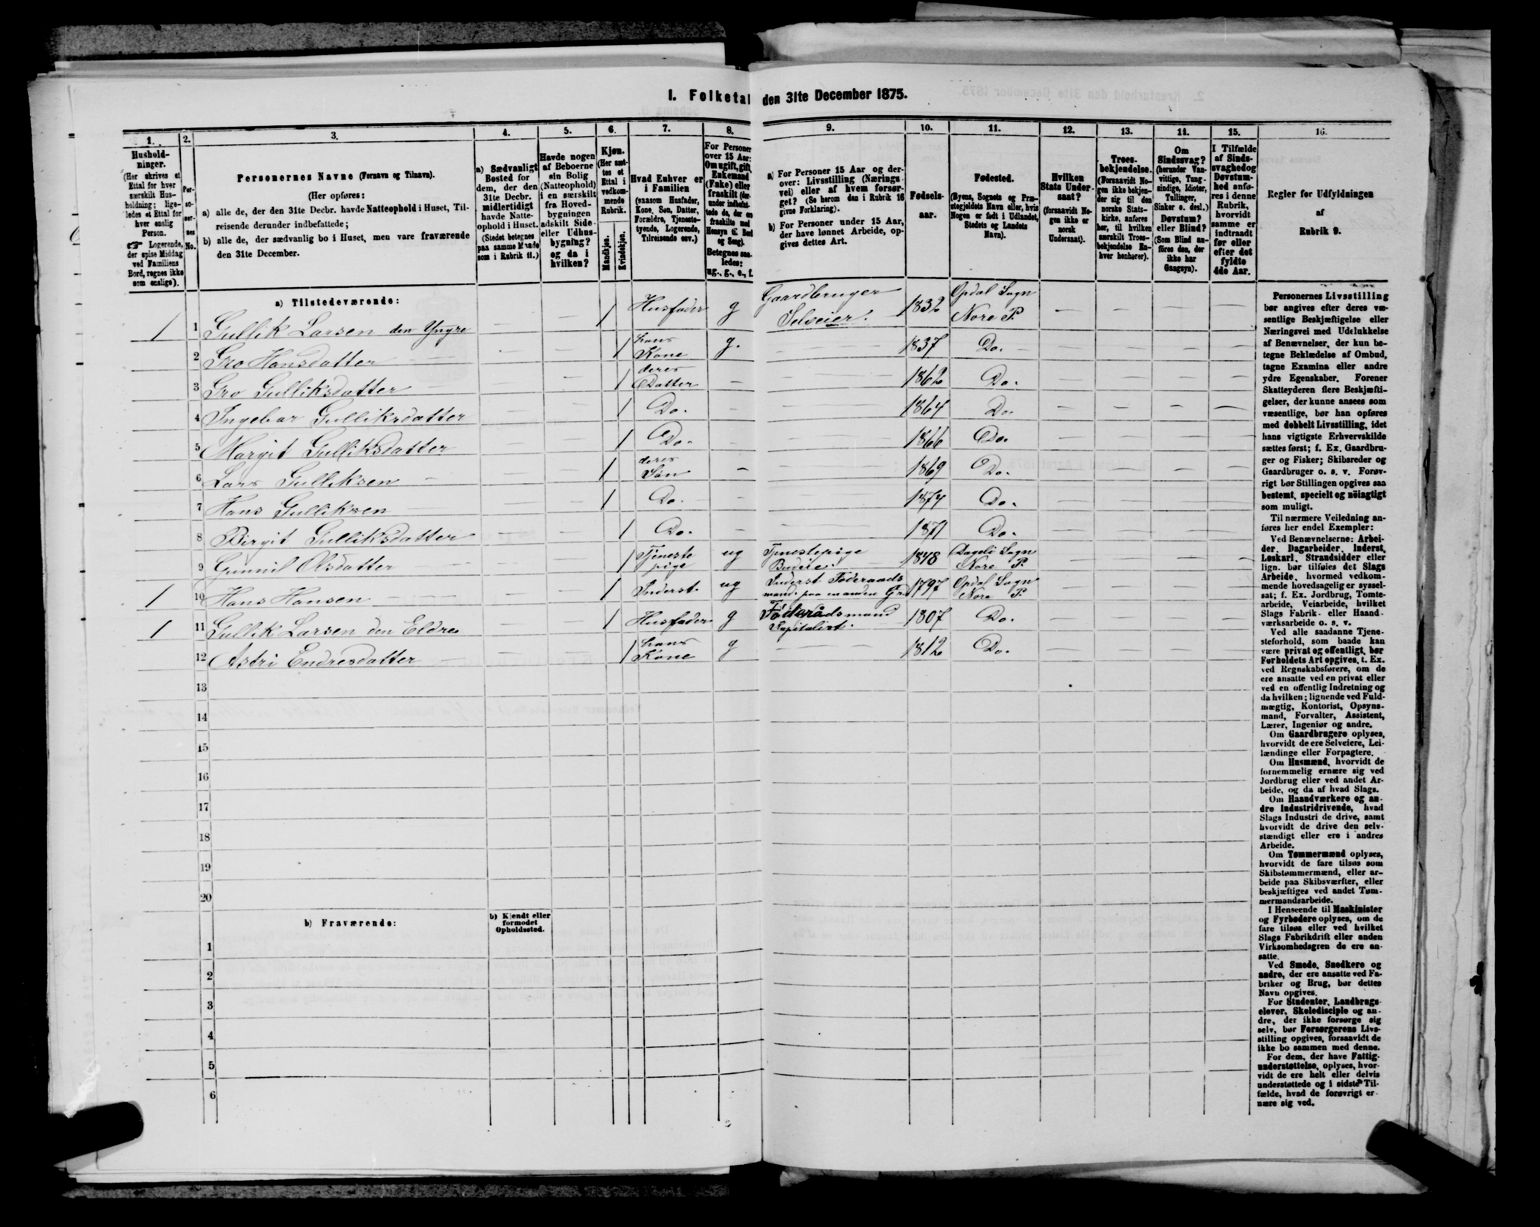 1. Folketal den 31te December 1875.
1. 2. 3. 4. 5. 6. 7. 8. 9. 10. 11. 12. 13. 14. 15. 16.
Hushold-
ninger.
(Her skrives et
Ettal for hver
særskilt Hus-
holdning; lige-
ledes et Ettal for
hver enslig
Person.
☞ Logerende,
der spise Middag
ved Familiens
Bord, regnes ikke
som enslige).
Per-
so-
ner-
nes
No.
Personernes Navne (Fornavn og Tilnavn).
(Her opføres:
a) alle de, der den 31te Decbr. havde Natteophold i Huset, Til-
reisende derunder indbefattede;
b) alle de, der sædvanlig bo i Huset, men vare fraværende
den 31te December.
a) Sædvanligt
Bosted for
dem, der den
31te Decbr.
midlertidigt
havde Natte-
ophold i Huset.
(Stedet betegnes
paa samme Maade
som i Rubrik 11.)
Havde nogen
af Beboerne
sin Bolig
(Natteophold)
i en særskilt
fra Hoved-
bygningen
adskilt Side-
eller Udhus-
bygning?
og da i
hvilken?
Kjøn.
(Her sæt-
tes et
Ettal i
vedkom-
mende
Rubrik.
Mandkjøn.
Kvindekjøn.
Hvad Enhver er
i Familien
(saasom Husfader,
Kone, Søn, Datter,
Forældre, Tjeneste-
tyende, Logerende,
Tilreisende osv.)
For Personer
over 15 Aar:
Om ugift, gift,
Enkemand
(Enke) eller
fraskilt
Betegnes saa-
ledes:
ug., g., e., f.
a) For Personer 15 Aar og der-
over: Livsstilling (Nærings-
vei) eller af hvem forsør-
get? (Se herom den i Rubrik 16
givne Forklaring).
b) For Personer under 15 Aar,
der have lønnet Arbeide, op-
gives dettes Art.
Fødsels-
aar.
Fødested.
(Byens, Sognets og Præ-
stegjeldets Navn eller, hvis
Nogen er født i Udlandet,
Stedets og Landets
Navn).
Hvilken
Stats Under-
saat?
(forsaavidt No-
gen ikke er
norsk
Undersaat).
Troes-
bekjendelse.
(Forsaavidt No-
gen ikke bekjen-
der sig til den
norske Stats-
kirke, anføres
her, til hvilken
særskilt Troes-
bekjendelse En-
hver henhører).
Om
Sindssvag?
(herunder Van-
vittige, Tung-
sindige, Idioter,
Tullinger,
Sinker o. desl.)
Døvstum?
eller Blind?
(Som Blind an-
føres den, der
ikke har
Gangsyn).
I Tilfælde
af Sinds-
svaghed og
Døvstum-
hed anfø-
res i denne
Rubrik,
hvorvidt
samme er
indtraadt
før eller
efter det
fyldte
4de Aar.
Regler for Udfyldningen
af
Rubrik 9.
a) Tilstedeværende:
1 1 Gullik Larsen den Yngre — — 1 Husfader g Gaardbruger Selveier. 1832 Opdal Sogn Nore P.
2 Gro Hansdatter — — 1 hans Kone g. — 1837 Do.
3 Gro Gulliksdatter — — 1 deres Datter — — 1862 Do.
4 Ingebor Gulliksdatter 1 Do. — — 1864 Do.
5 Margit Gulliksdatter 1 Do. — 1866 Do.
6 Lars Gulliksen — 1 deres Søn — — 1869 Do.
7 Hans Gulliksen — 1 Do. — — 1874 Do.
8 Birgit Gulliksdatter — 1 Do. — — 1871 Do.
9 Gunnil Olsdatter — 1 Tjeneste pige ug Tjenestepige Budeie. 1848 Dagali Sogn Nore P.
1 10 Hans Hansen — 1 Inderst. ug Inderst Føderaads mand 1797 Opdal Sogn Nore P.
1 11 Gullik Larsen den Eldre 1 Husfader g Føderådsmand Kapitalist. 1807 Do.
12 Astri Endresdatter — 1 hans Kone g — 1812 Do.
13
14
15
16
17
18
19
20
b) Fraværende:
b) Kjendt eller
formodet
Opholdssted.
1
2
3
4
5
6
Personernes Livsstilling
bør angives efter deres væ-
sentlige Beskjæftigelse eller
Næringsvei med Udelukkelse
af Benævnelser, der kun be-
tegne Beklædelse af Ombud,
tagne Examina eller andre
ydre Egenskaber. Forener
Skatteyderen flere Beskjæfti-
gelser, der kunne ansees som
væsentlige, bør han opføres
med dobbelt Livsstilling, idet
hans vigtigste Erhvervskilde
sættes først; f. Ex. Gaardbru-
ger og Fisker; Skibsreder og
Gaardbruger o. s. v. Forøv-
rigt bør Stillingen opgives saa
bestemt, specielt og nøiagtigt
som muligt.
Til nærmere Veiledning an-
føres her endel Exempler:
Ved Benævnelserne: Arbei-
der, Dagarbeider, Inderst,
Løskarl, Strandsidder eller
lign. bør tilføies det Slags
Arbeide, hvormed vedkom-
mende hovedsagelig er syssel-
sat; f. Ex. Jordbrug, Tomte-
arbeide, Veiarbeide, hvilket
Slags Fabrik- eller Haand-
værksarbeide o. s. v.
Ved alle saadanne Tjene-
steforhold, som baade kan
være privat og offentligt, bør
Forholdets Art opgives, t. Ex.
ved Regnskabsførere, om de
ere ansatte ved en privat eller
ved en offentlig Indretning og
da hvilken; lignende ved Fuld-
mægtig, Kontorist, Opsyns-
mand, Forvalter, Assistent,
Lærer, Ingeniør og andre.
Om Gaardbrugere oplyses,
hvorvidt de ere Selveiere, Lei-
lændinge eller Forpagtere.
Om Husmænd, hvorvidt de
fornemmelig ernære sig ved
Jordbrug eller ved andet Ar-
beide, og da af hvad Slags.
Om Haandværkere og an-
dre Industridrivende, hvad
Slags Industri de drive, samt
hvorvidt de drive den selv-
stændigt eller ere i andres
Arbeide.
Om Tømmermænd oplyses,
hvorvidt de fare tilsøs som
Skibstømmermænd, eller ar-
beide paa Skibsværfter, eller
beskjæftiges ved andet Tøm-
mermandsarbeide.
I Henseende til Maskinister
og Fyrbødere oplyses, om de
fare tilsøs eller ved hvilket
Slags Fabrikdrift eller anden
Virksomhedsgren de ere an-
satte.
Ved Smede, Snedkere og
andre, der ere ansatte ved Fa-
briker og Brug, bør dettes
Navn opgives.
For Studenter, Landbrugs-
elever, Skoledisciple og an-
dre, der ikke forsørge sig
selv, bør Forsørgerens Livs-
stilling opgives, forsaavidt de
ikke bo sammen med denne.
For dem, der have Fattig-
understøttelse, oplyses, hvor-
vidt de ere helt eller delvis
understøttede og i sidste Til-
fælde, hvad de forøvrigt er-
nære sig ved.